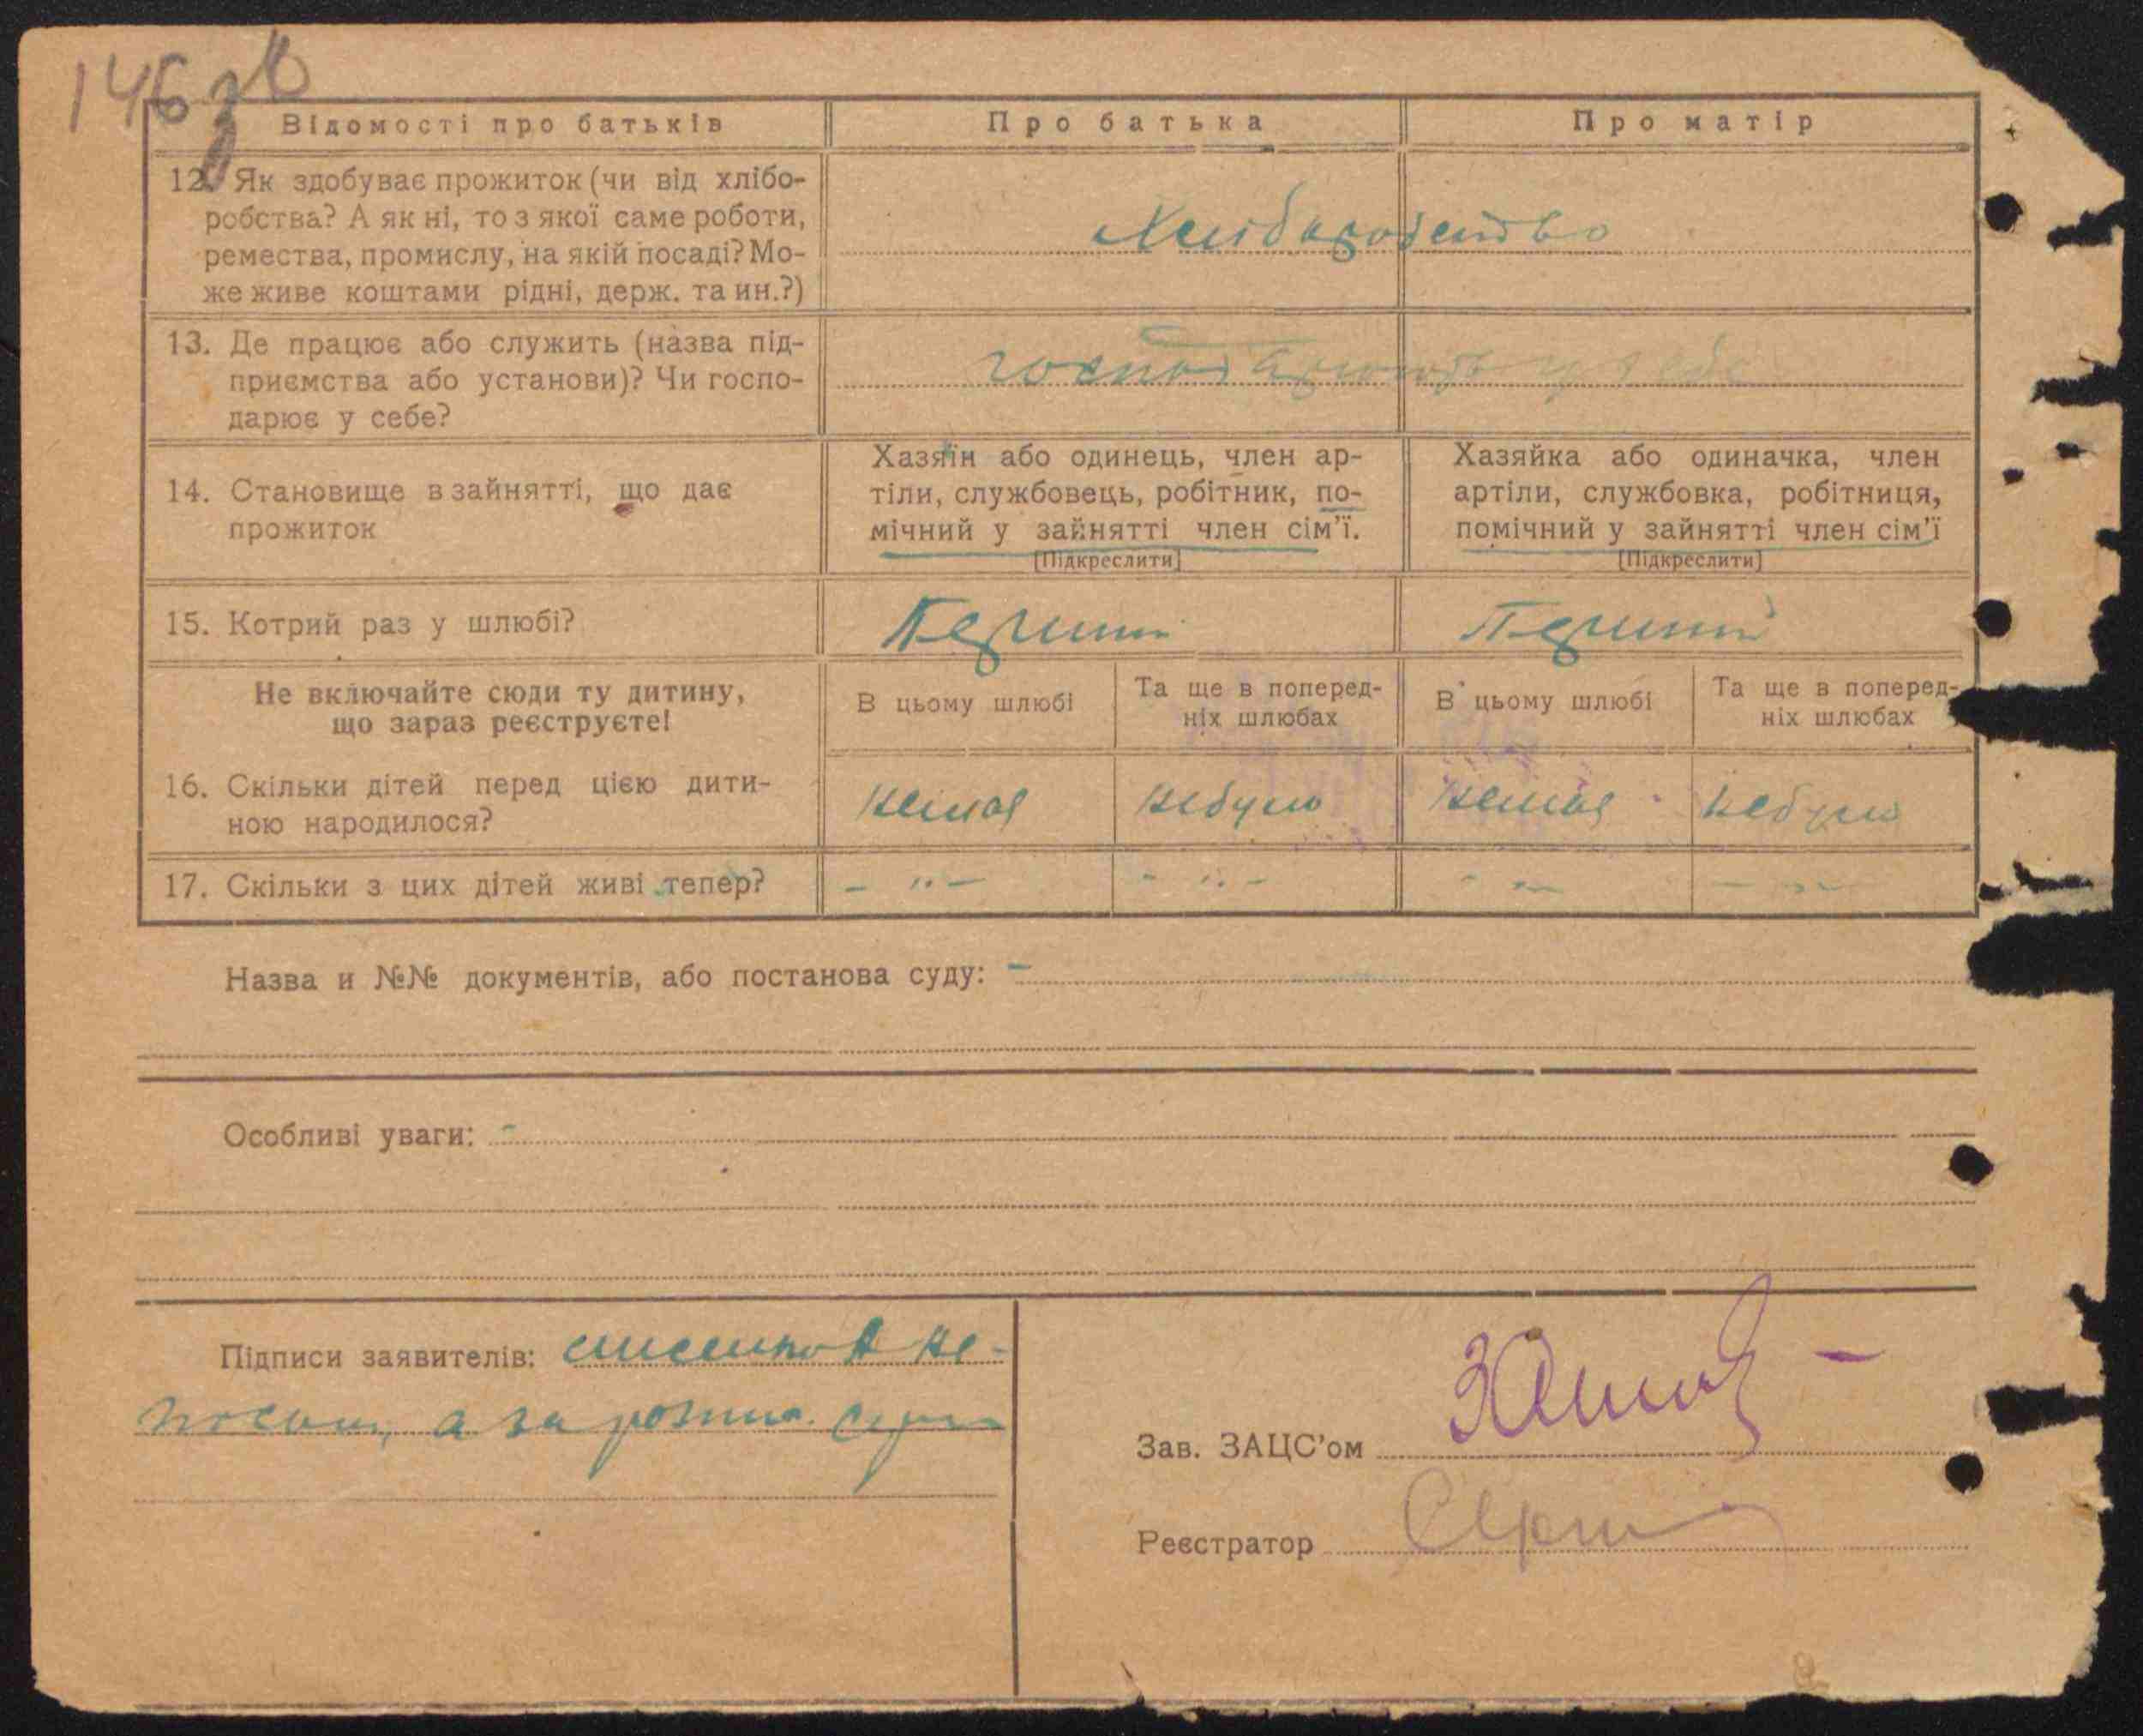 146 зв
Відомості про батьків
Про батька
Про матір
12. Як здобуває прожиток (чи від хлібо-
робства? А як ні, то з якої саме роботи,
ремества, промислу, на якій посаді? Мо-
же живе коштами рідні, держ. та ин.?)
Хліборобство
13. Де працює або служить (назва під-
приємства або установи)? Чи госпо-
дарює у себе?
господарюють у себе
14. Становище в зайнятті, що дає
прожиток
Хазяїн або одинець, член ар-
тіли, службовець, робітник, по-
мічний у зайнятті член сім'ї.
[Підкреслити]
Хазяйка або одиначка, член
артіли, службовка, робітниця,
помічний у зайнятті член сім'ї
[Підкреслити]
15. Котрий раз у шлюбі?
Перший
Перший
Не включайте сюди ту дитину,
що зараз реєструєте!
В цьому шлюбі
Та ще в поперед-
ніх шлюбах
В цьому шлюбі
Та ще в поперед-
ніх шлюбах
16. Скільки дітей перед цією дити-
ною народилося?
немає
небуло
немає
небуло
17. Скільки з цих дітей живі тепер?
- " -
- " -
- " -
- " -
Назва и №№ документів, або постанова суду: -
Особливі уваги: -
Підписи заявителів: не-
а за
Зав. ЗАЦС'ом
Реєстратор